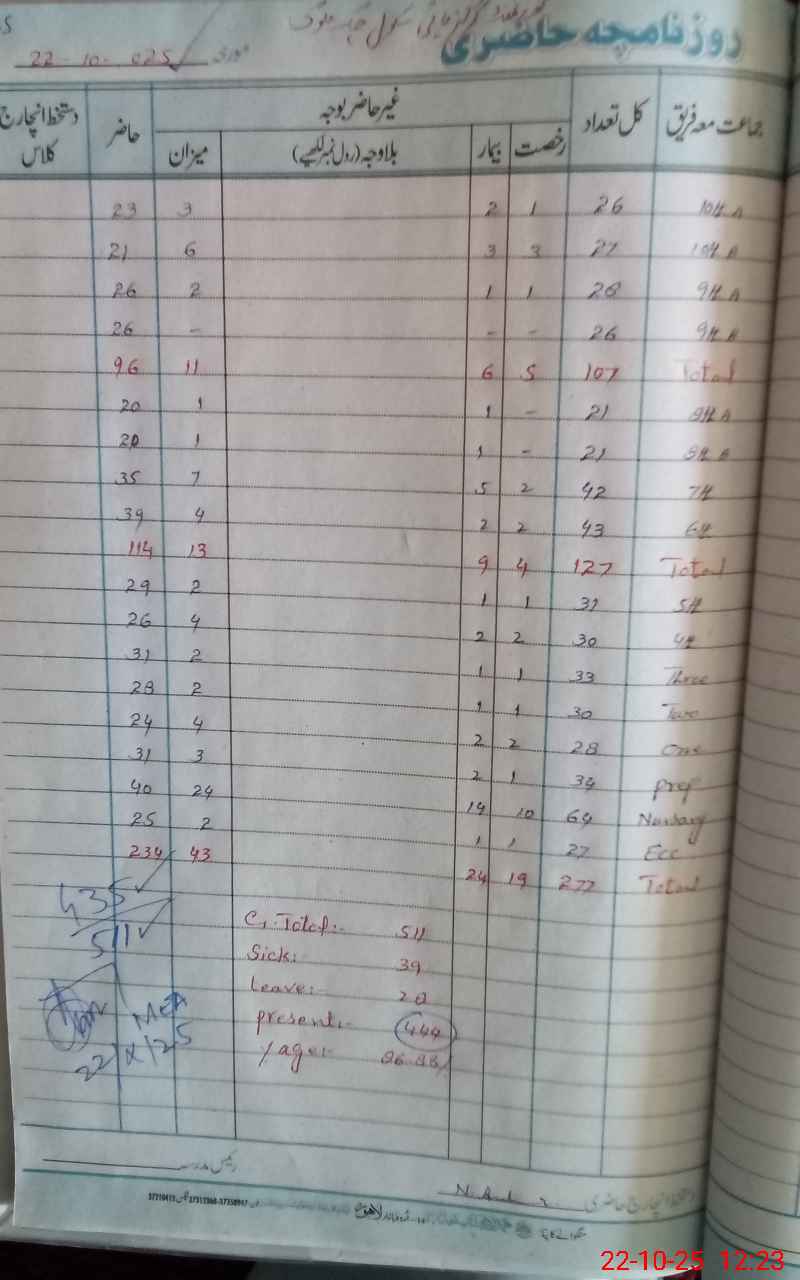 روزنامچہ حاضری
مورخہ 22-10-025
جماعت معہ فریق کل تعداد غیر حاضر بوجہ حاضر دستخط انچارج کلاس
رخصت بیمار بلاوجہ (رول نمبر لکھیے) میزان
10th A 26 1 2 3 23
10th B 27 3 3 6 21
9th A 28 1 1 2 26
9th B 26 - - - 26
Total 107 5 6 11 96
8th A 21 - 1 1 20
8th B 21 - 1 1 20
7th 42 2 5 7 35
6th 43 2 2 4 39
Total 127 4 9 13 114
5th 31 1 1 2 29
4th 30 2 2 4 26
Three 33 1 1 2 31
Two 30 1 1 2 28
One 28 2 2 4 24
prep 34 1 2 3 31
Nursary 64 10 14 24 40
Ecc 27 1 1 2 25
Total 277 19 24 43 234
435
511
G. Total:- 511
Sick:- 39
Leave:- 28
present:- 444
%age:-
MEA
22/X/25
رئیس مدرسہ
دستخط انچارج حاضری
لاہور
22-10-25 12:23